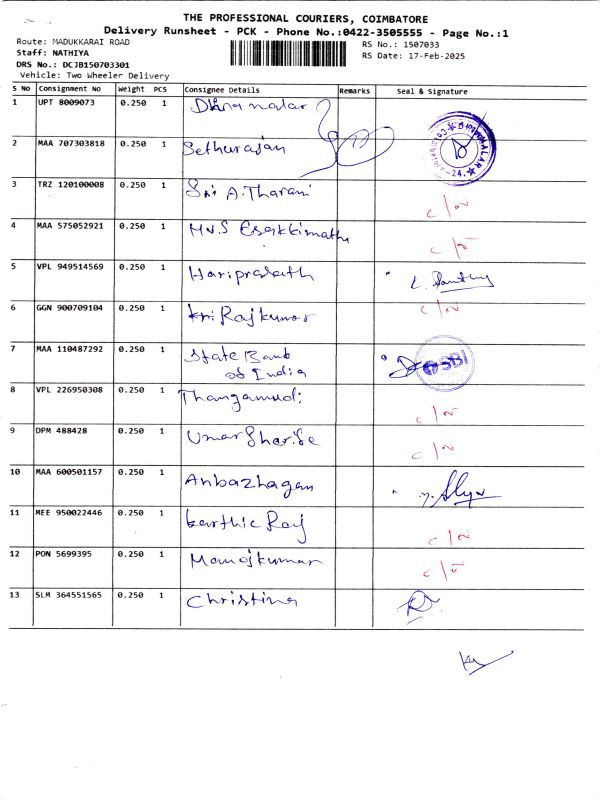 THE PROFESSIONAL COURIERS, COIMBATORE
Delivery Runsheet - PCK - Phone No.:0422-3505555 - Page No.:1
Route: MADUKKARAI ROAD
RS No.: 1507033
Staff: NATHIYA
RS Date: 17-Feb-2025
DRS No.: DCJB150703301
Vehicle: Two Wheeler Delivery
S No Consignment No Weight PCS Consignee Details Remarks Seal & Signature
1 UPT 8009073 0.250 1 Dhanamalar
2 MAA 707303818 0.250 1 Sethurajan
3 TRZ 120100008 0.250 1 Sri A. Tharani
4 MAA 575052921 0.250 1 M/S Esakkimathu
5 VPL 949514569 0.250 1 Hariprasath
6 GGN 900709104 0.250 1 Rajkumar
7 MAA 110487292 0.250 1 State Bank
of India SBI
8 VPL 226950308 0.250 1 Thangamudi
9 DPM 488428 0.250 1 Umar Sharife
10 MAA 600501157 0.250 1 Anbazhagan
11 MEE 950022446 0.250 1 Karthic Raj
12 PON 5699395 0.250 1 Manojkumar
13 SLM 364551565 0.250 1 Christina